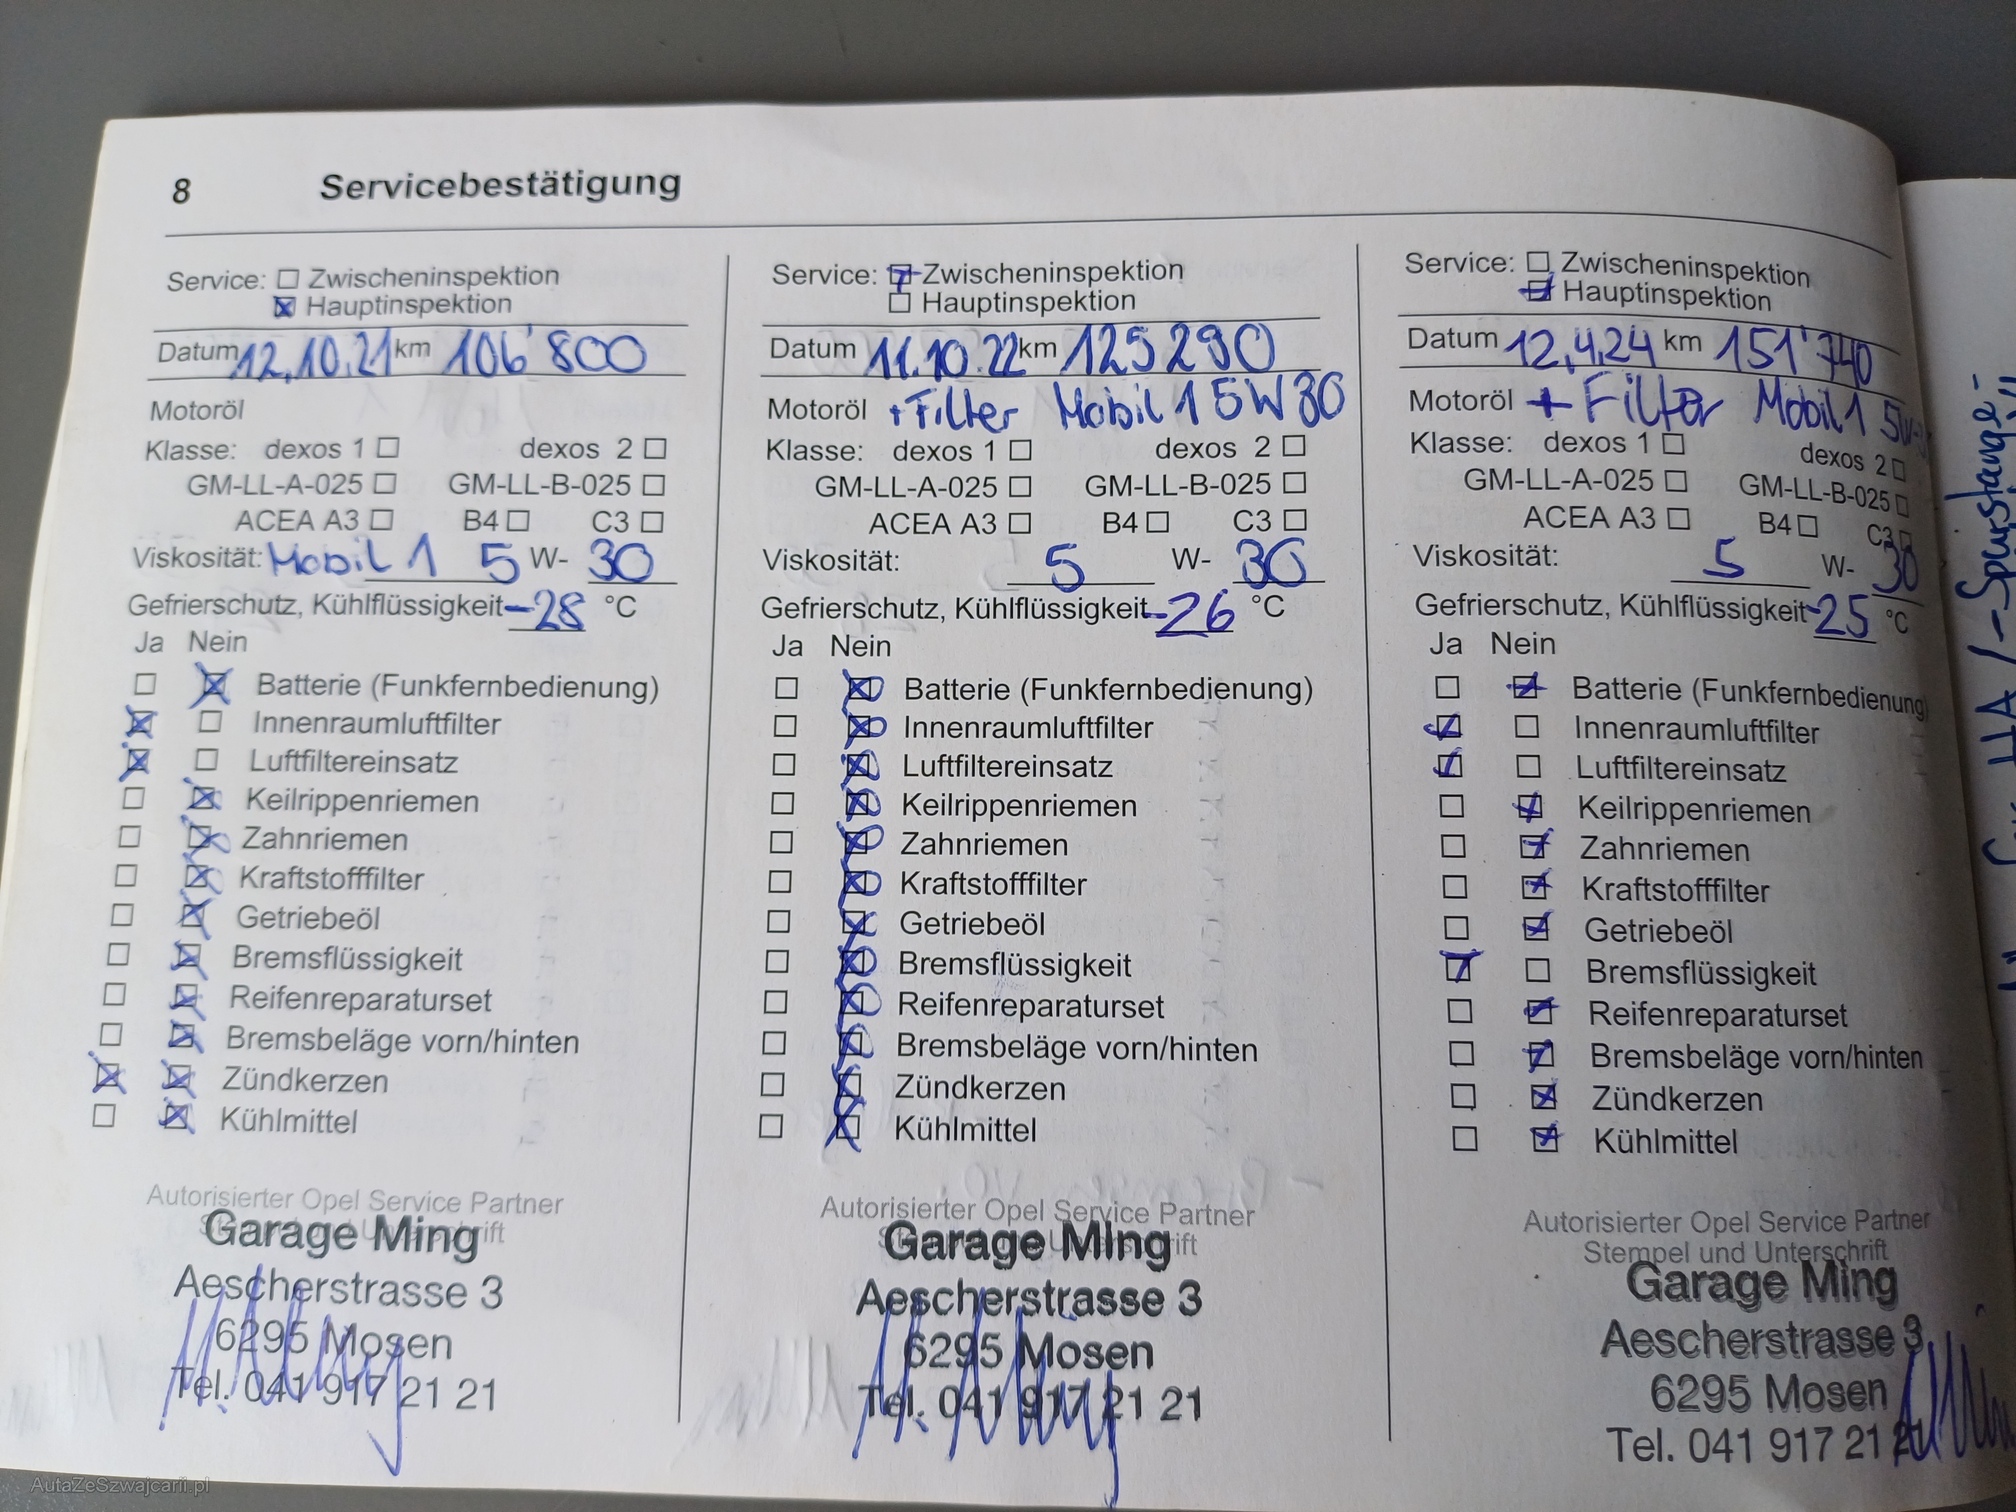 8 Servicebestätigung
Service: Zwischeninspektion
Hauptinspektion
Datum 12.10.21 km 106'800
Motoröl
Klasse: dexos 1 dexos 2
GM-LL-A-025 GM-LL-B-025
ACEA A3 B4 C3
Viskosität: Mobil 1 5 W- 30
Gefrierschutz, Kühlflüssigkeit -28 °C
Ja Nein
Batterie (Funkfernbedienung)
Innenraumluftfilter
Luftfiltereinsatz
Keilrippenriemen
Zahnriemen
Kraftstofffilter
Getriebeöl
Bremsflüssigkeit
Reifenreparaturset
Bremsbeläge vorn/hinten
Zündkerzen
Kühlmittel
Autorisierter Opel Service Partner
Stempel und Unterschrift
Garage Ming
Aescherstrasse 3
6295 Mosen
Tel. 041 917 21 21
Service: Zwischeninspektion
Hauptinspektion
Datum 11.10.22 km 125290
Motoröl + Filter Mobil 1 5W30
Klasse: dexos 1 dexos 2
GM-LL-A-025 GM-LL-B-025
ACEA A3 B4 C3
Viskosität: 5 W- 30
Gefrierschutz, Kühlflüssigkeit -26 °C
Ja Nein
Batterie (Funkfernbedienung)
Innenraumluftfilter
Luftfiltereinsatz
Keilrippenriemen
Zahnriemen
Kraftstofffilter
Getriebeöl
Bremsflüssigkeit
Reifenreparaturset
Bremsbeläge vorn/hinten
Zündkerzen
Kühlmittel
Autorisierter Opel Service Partner
Stempel und Unterschrift
Garage Ming
Aescherstrasse 3
6295 Mosen
Tel. 041 917 21 21
Service: Zwischeninspektion
Hauptinspektion
Datum 12.4.24 km 151'740
Motoröl + Filter Mobil 1 5W-
Klasse: dexos 1 dexos 2
GM-LL-A-025 GM-LL-B-025
ACEA A3 B4 C3
Viskosität: 5 W- 30
Gefrierschutz, Kühlflüssigkeit -25 °C
Ja Nein
Batterie (Funkfernbedienung)
Innenraumluftfilter
Luftfiltereinsatz
Keilrippenriemen
Zahnriemen
Kraftstofffilter
Getriebeöl
Bremsflüssigkeit
Reifenreparaturset
Bremsbeläge vorn/hinten
Zündkerzen
Kühlmittel
Autorisierter Opel Service Partner
Stempel und Unterschrift
Garage Ming
Aescherstrasse 3
6295 Mosen
Tel. 041 917 21 21
-Spurstange-
AutaZeSzwajcarii.pl